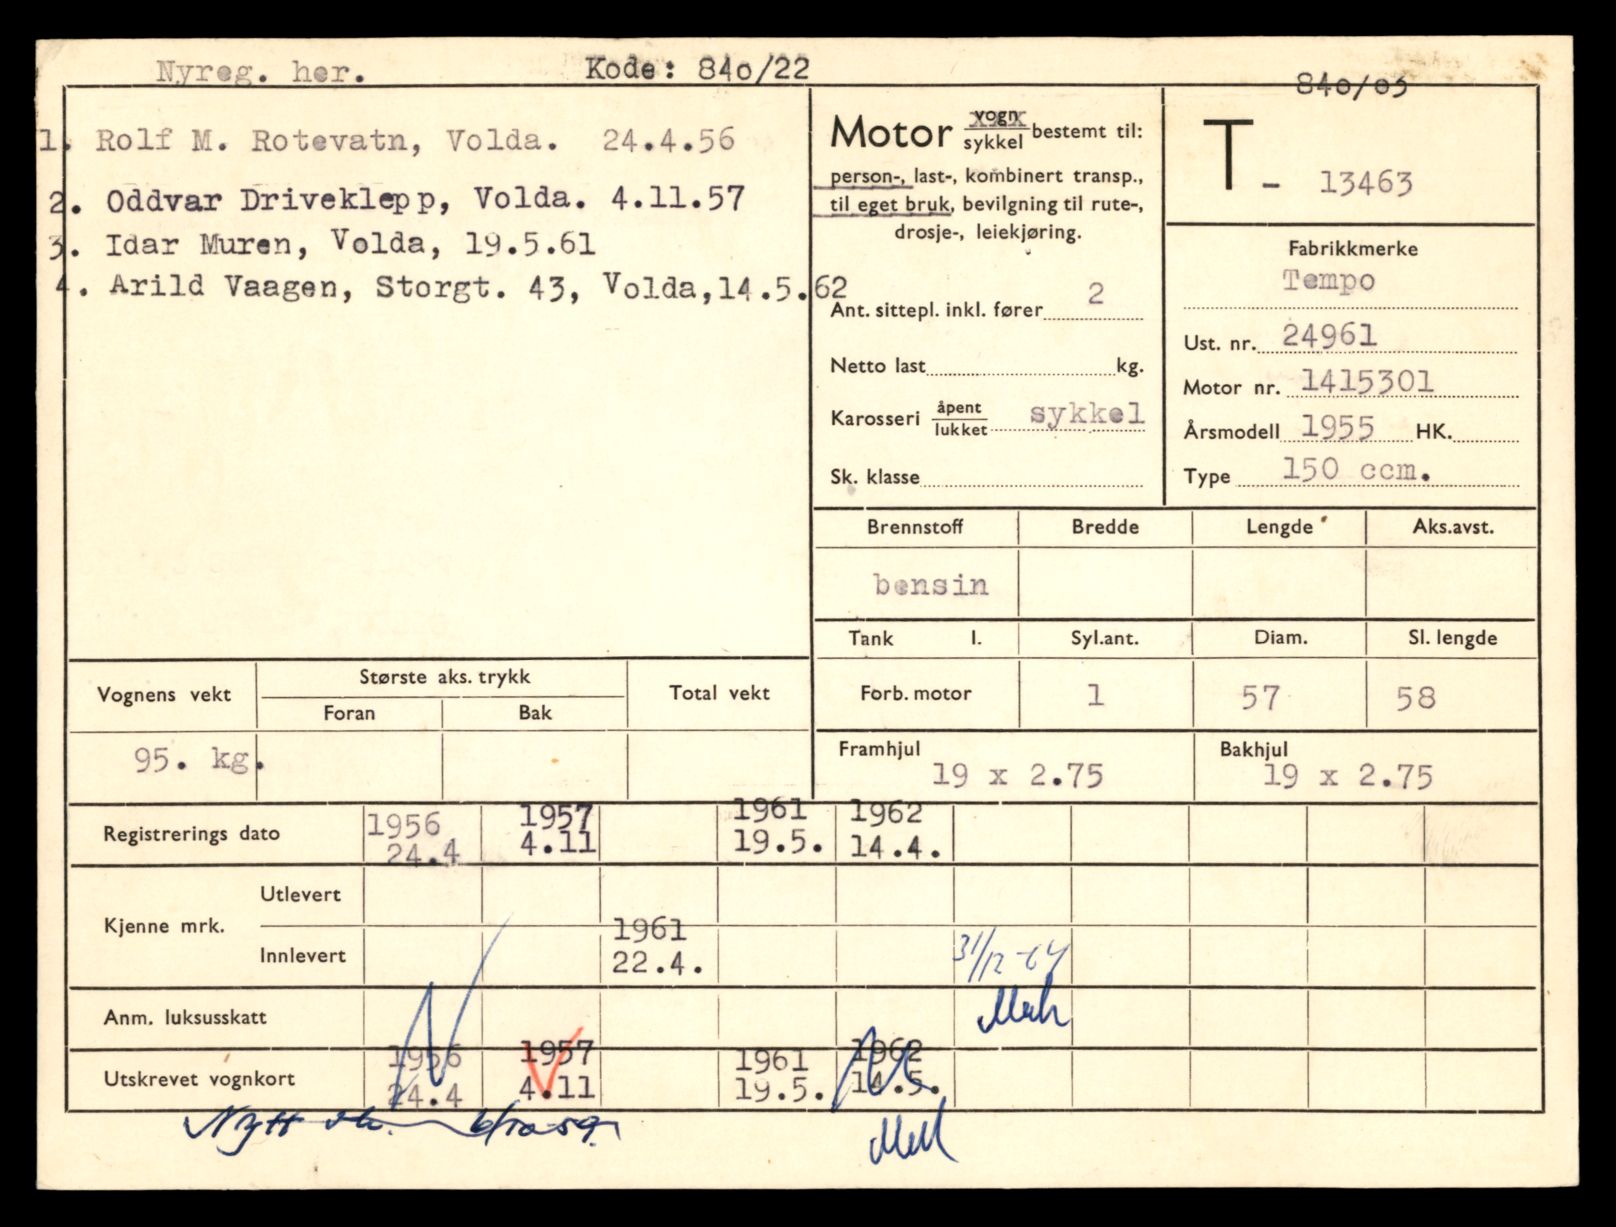 Nyreg. her. Kode: 840/22
840/03
1. Rolf M. Rotevatn, Volda. 24.4.56
2. Oddvar Driveklepp, Volda. 4.11.57
3. Idar Muren, Volda, 19.5.61
4. Arild Vaagen, Storgt. 43, Volda, 14.5.62
Motor vogn/sykkel bestemt til:
person-, last-, kombinert transp.,
til eget bruk, bevilgning til rute-,
drosje-, leiekjøring.
Ant. sittepl. inkl. fører 2
Netto last kg.
Karosseri åpent/lukket sykkel
Sk. klasse
T - 13463
Fabrikkmerke
Tempo
Ust. nr. 24961
Motor nr. 1415301
Årsmodell 1955 HK.
Type 150 ccm.
Brennstoff Bredde Lengde Aks.avst.
bensin
Tank l. Syl.ant. Diam. Sl. lengde
Forb. motor 1 57 58
Framhjul Bakhjul
19 x 2.75 19 x 2.75
Vognens vekt Største aks. trykk Total vekt
Foran Bak
95. kg.
Registrerings dato 1956 1957 1961 1962
24.4 4.11 19.5. 14.4.
Kjenne mrk. Utlevert
Innlevert 1961 31/12-64
22.4.
Anm. luksusskatt
Utskrevet vognkort 1956 1957 1961 1962
24.4 4.11 19.5. 14.5.
Nytt 6/10-59.